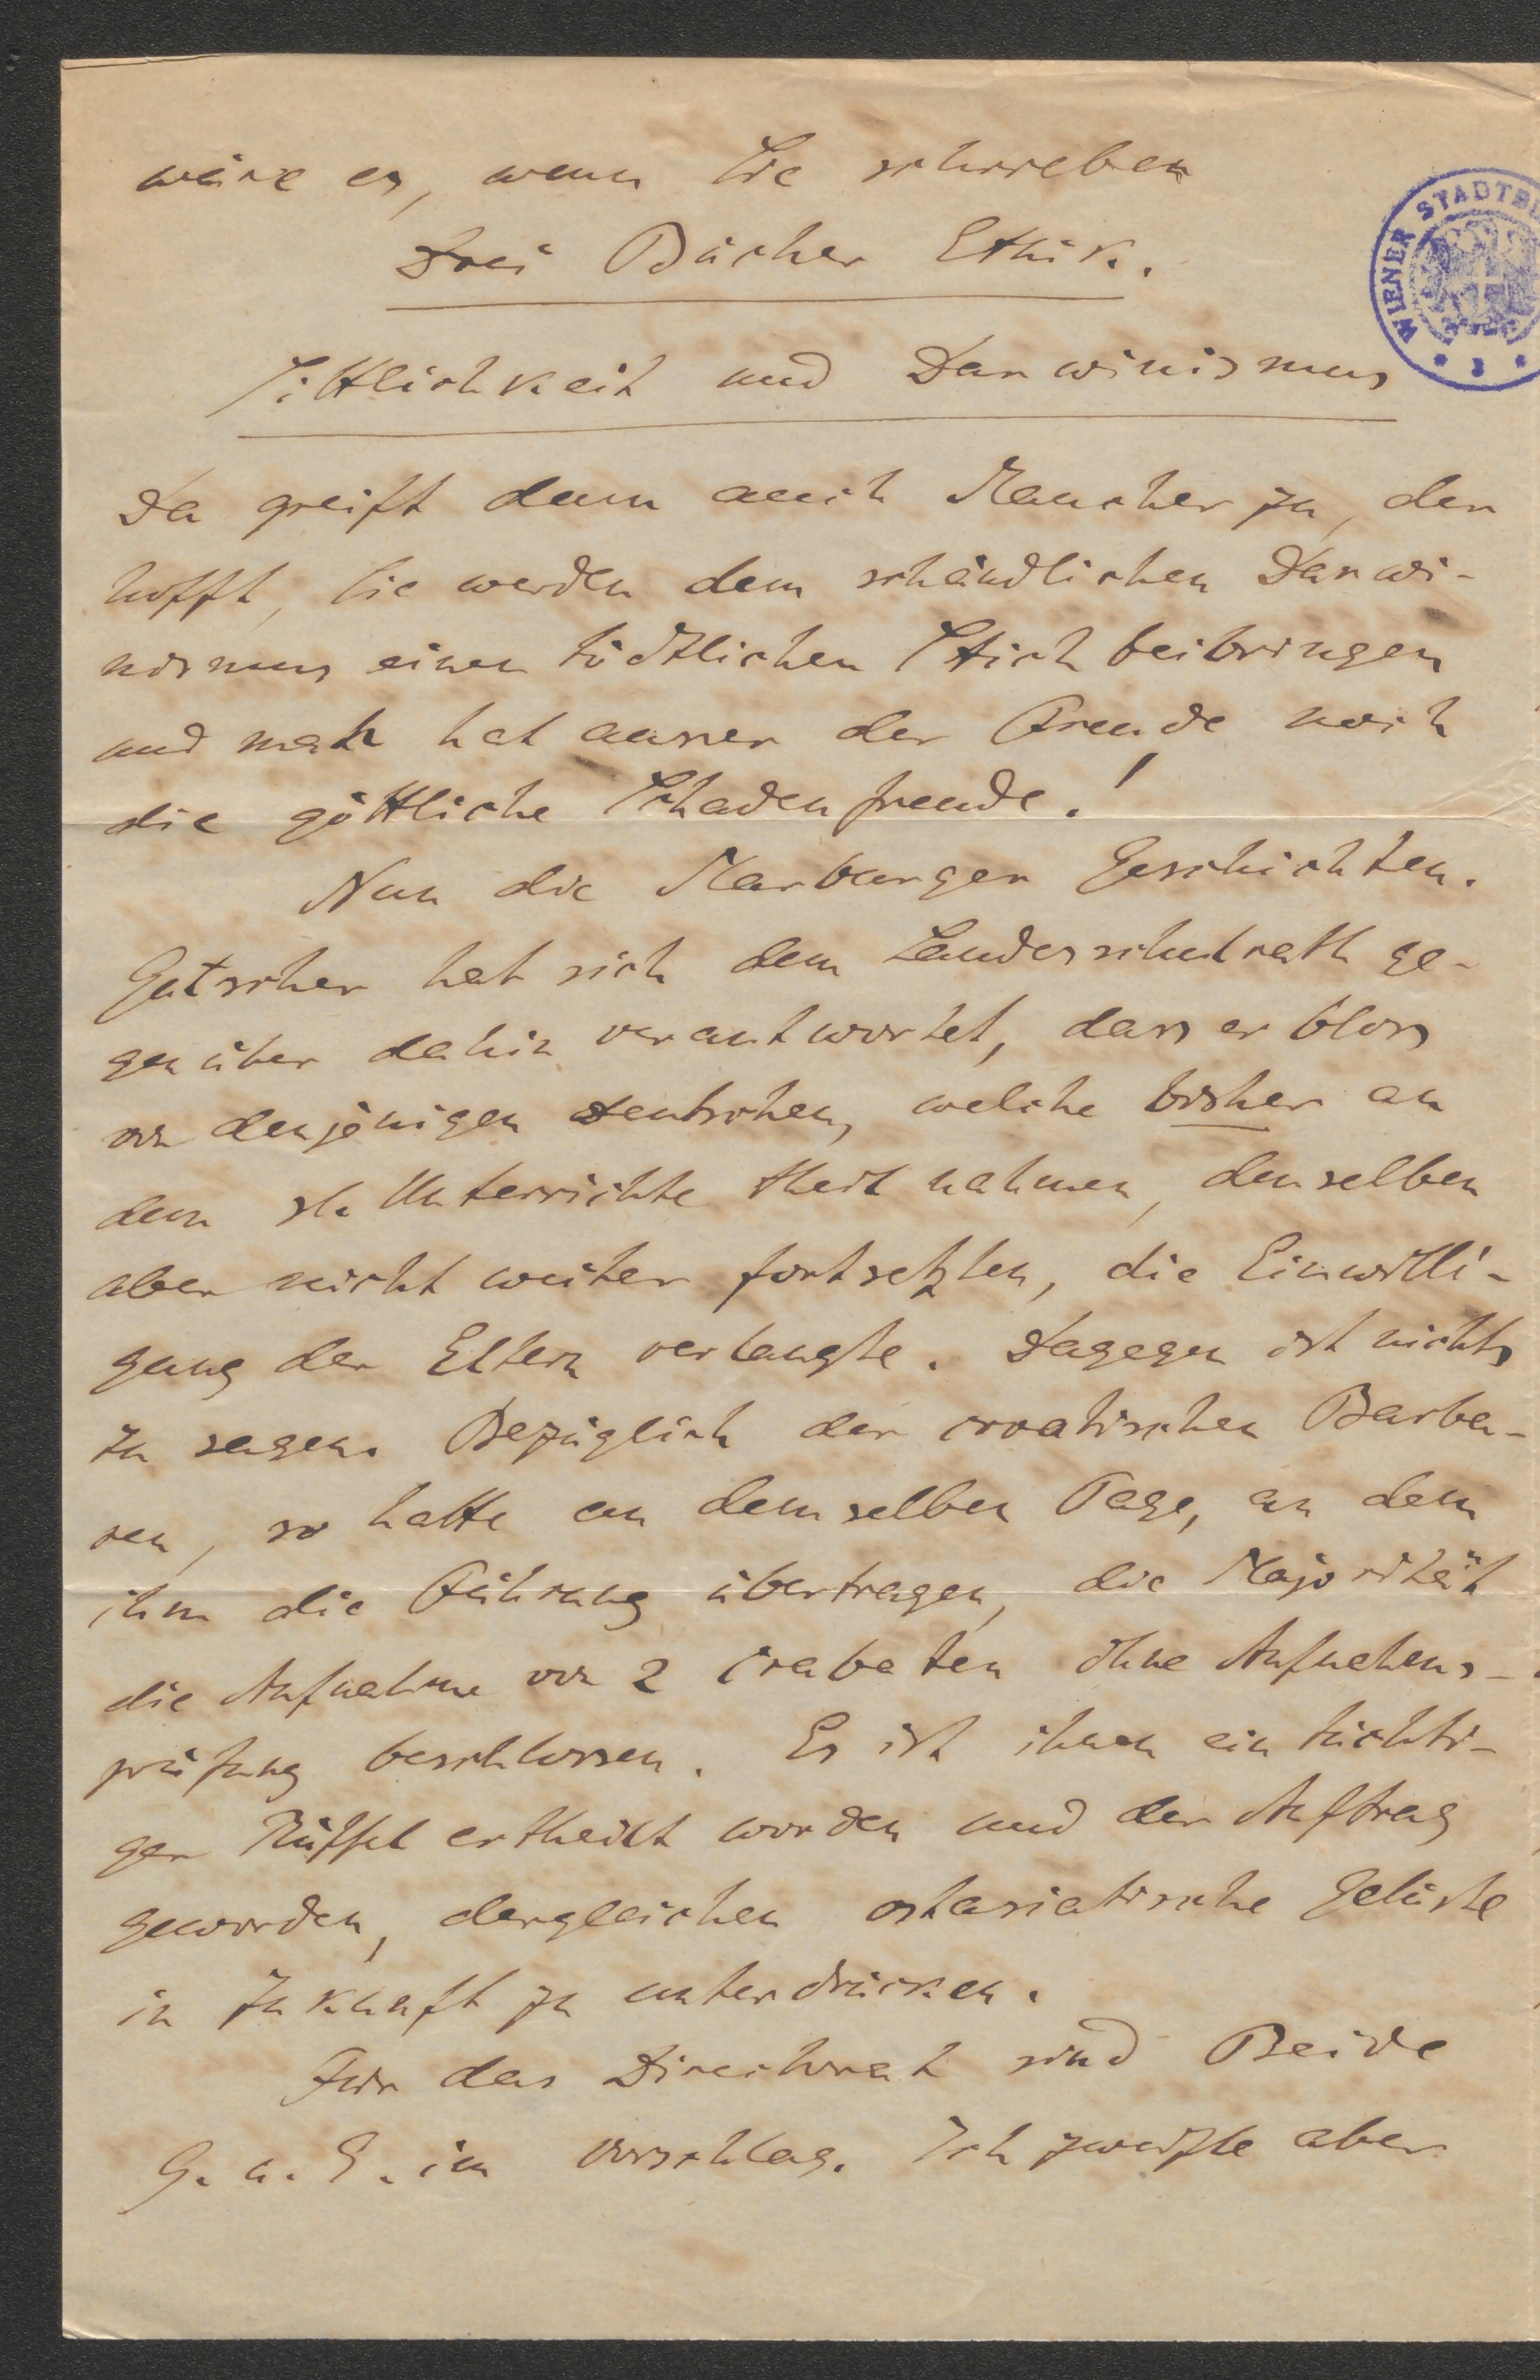 wäre es, wenn Sie schrieben
Drei Bücher Ethik.
Sittlichkeit und Darwinismus
Da greift dann auch Mancher zu, der
hofft, Sie werden dem schändlichen Darwi-
nismus einen tödtlichen Stich beibringen
und man hat ausser der Freude noch
die göttliche Schadenfreude!
Nun die Marburger Geschichten.
Gutscher hat sich dem Landesschulrath ge-
genüber dahin verantwortet, dass er bloss
von denjenigen Deutschen, welche bisher an
dem sl. Unterrichte theil nahmen, denselben
aber nicht weiter fortsetzten, die Einwilli-
gung der Eltern verlangte. Dagegen ist nichts
zu sagen. Bezüglich der croatischen Barba-
ren, so hatte an demselben Tage, an dem
ihm die Führung übertragen, die Majorität
die Aufnahme von 2 Crabaten ohne Aufnahms-
prüfung beschlossen. Es ist ihnen ein tüchti-
ger Rüffel ertheilt worden und der Auftrag
geworden, dergleichen ostasiatische Gelüste
in Zukunft zu unterdrücken.
Für das Directorat sind Beide
G. u. E. im Vorschlag. Ich zweifle aber
WIENER STADTBI